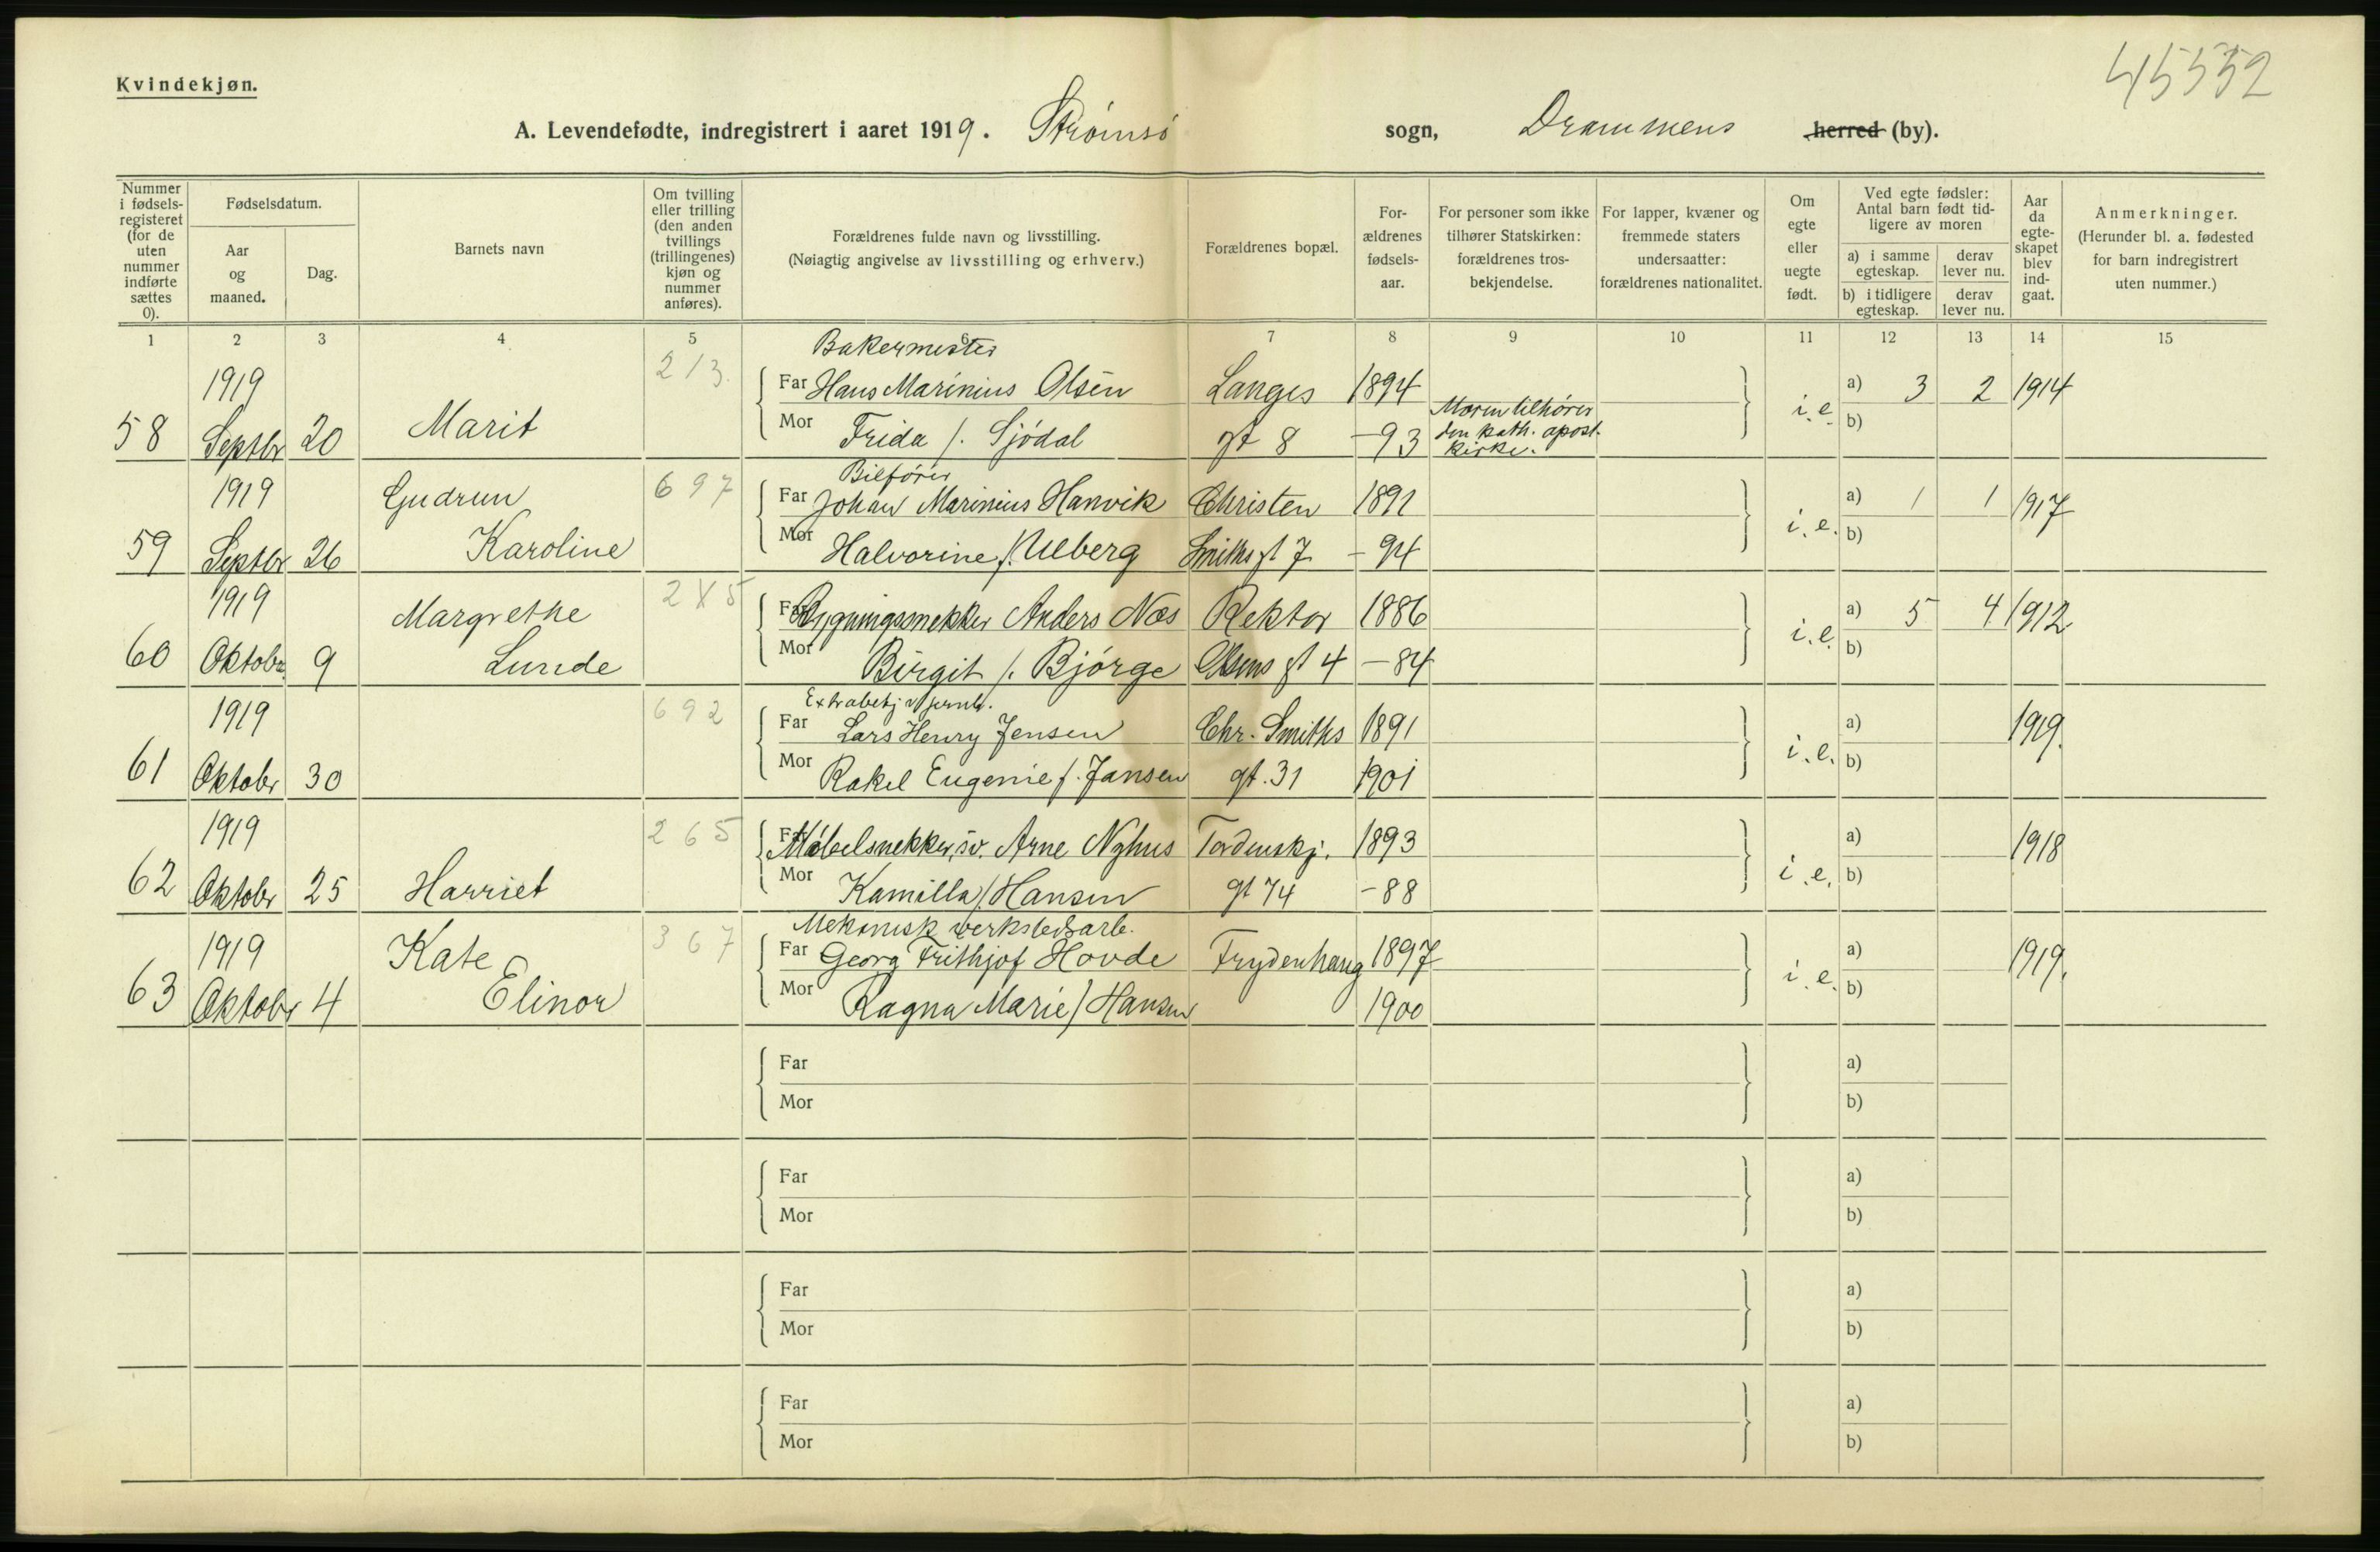 45552
Kvindekjøn.
A. Levendefødte, indregistrert i aaret 1919. Strømsø sogn, Drammens herred (by).
Nummer i fødsels-registeret (for de uten nummer indførte sættes 0).
Fødselsdatum.
Aar og maaned.
Dag.
Barnets navn
Om tvilling eller trilling (den anden tvillings (trillingenes) kjøn og nummer anføres).
Forældrenes fulde navn og livsstilling.
(Nøiagtig angivelse av livsstilling og erhverv.)
Forældrenes bopæl.
For-ældrenes fødsels-aar.
For personer som ikke tilhører Statskirken: forældrenes tros-bekjendelse.
For lapper, kvæner og fremmede staters undersaatter: forældrenes nationalitet.
Om egte eller uegte født.
Ved egte fødsler: Antal barn født tid-ligere av moren
a) i samme egteskap.
derav lever nu.
b) i tidligere egteskap.
derav lever nu.
Aar da egte-skapet blev ind-gaat.
Anmerkninger.
(Herunder bl. a. fødested for barn indregistrert uten nummer.)
1 2 3 4 5 6 7 8 9 10 11 12 13 14 15
Bakermester
213.
1919 Far Hans Marinius Olsen Langes 1894 a) 3 2 1914
58 Septbr 20 Marit Mor Frida f. Sjödal gt 8 -93 Moren tilhører den kath. apost. kirke. i.e. b)
Bilfører
1919 Gudrun 697 Far Johan Marinius Hanvik Christen 1891 a) 1 1 1917
59 Septbr 26 Karoline Mor Halvorine f. Ulberg Smiths gt 7 -94 i.e. b)
1919 Margrethe 2X5 Far Bygningssnekker Anders Næs Rektor 1886 a) 5 4 1912
60 Oktobr. 9 Lunde Mor Birgit f. Bjørge Olsens gt 4 -84 i.e. b)
Extrabetj v jernb.
1919 692 Far Lars Henry Jensen Chr. Smiths 1891 a) 1919.
61 Oktobr 30 Mor Rakel Eugenie f. Jansen gt. 31 1901 i.e. b)
1919 265 Far Møbelsnekker, sv. Arne Nyhus Tordenskj. 1893 a) 1918
62 Oktobr 25 Harriet Mor Kamilla f. Hansen gt 74 -88 i.e. b)
Mekanisk verkstedsarb.
1919 Kate 367 Far Georg Frithjof Hovde Frydenhaug 1897 a) 1919.
63 Oktobr 4 Elinor Mor Ragna Marie f Hansen 1900 i.e. b)
Far a)
Mor b)
Far a)
Mor b)
Far a)
Mor b)
Far a)
Mor b)